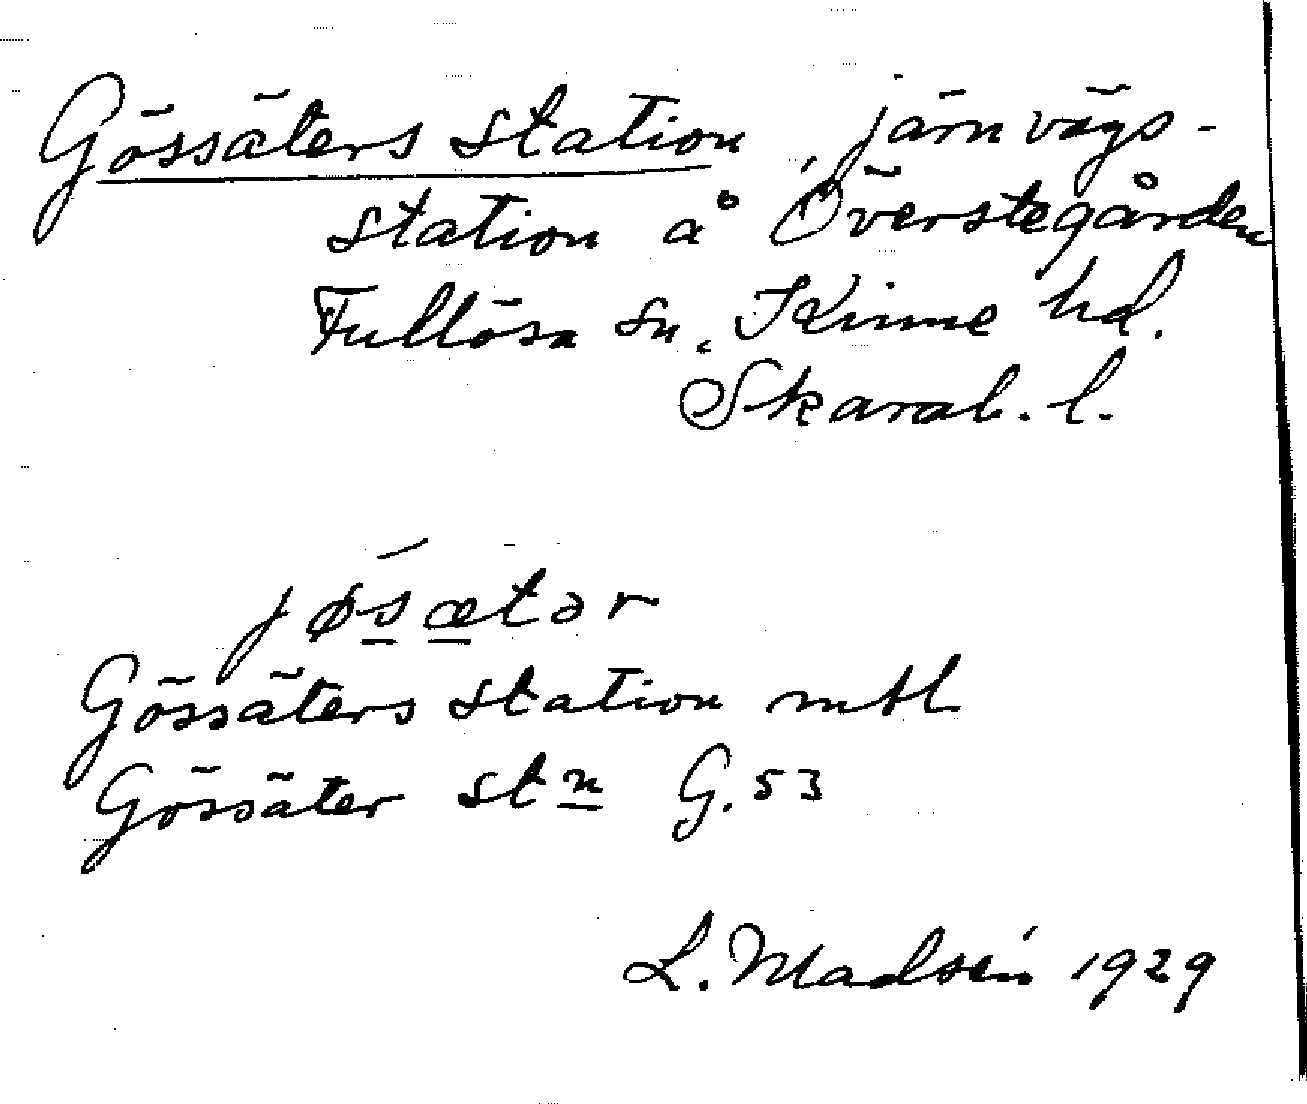 Gössäters station, järnvägs-
station å Överstegården
Fullösa sn, Kinne hd.
Skarab. l.
jøsætər
Gössäters station mtl
Gössäter stn G. 53
L. Madsén 1929